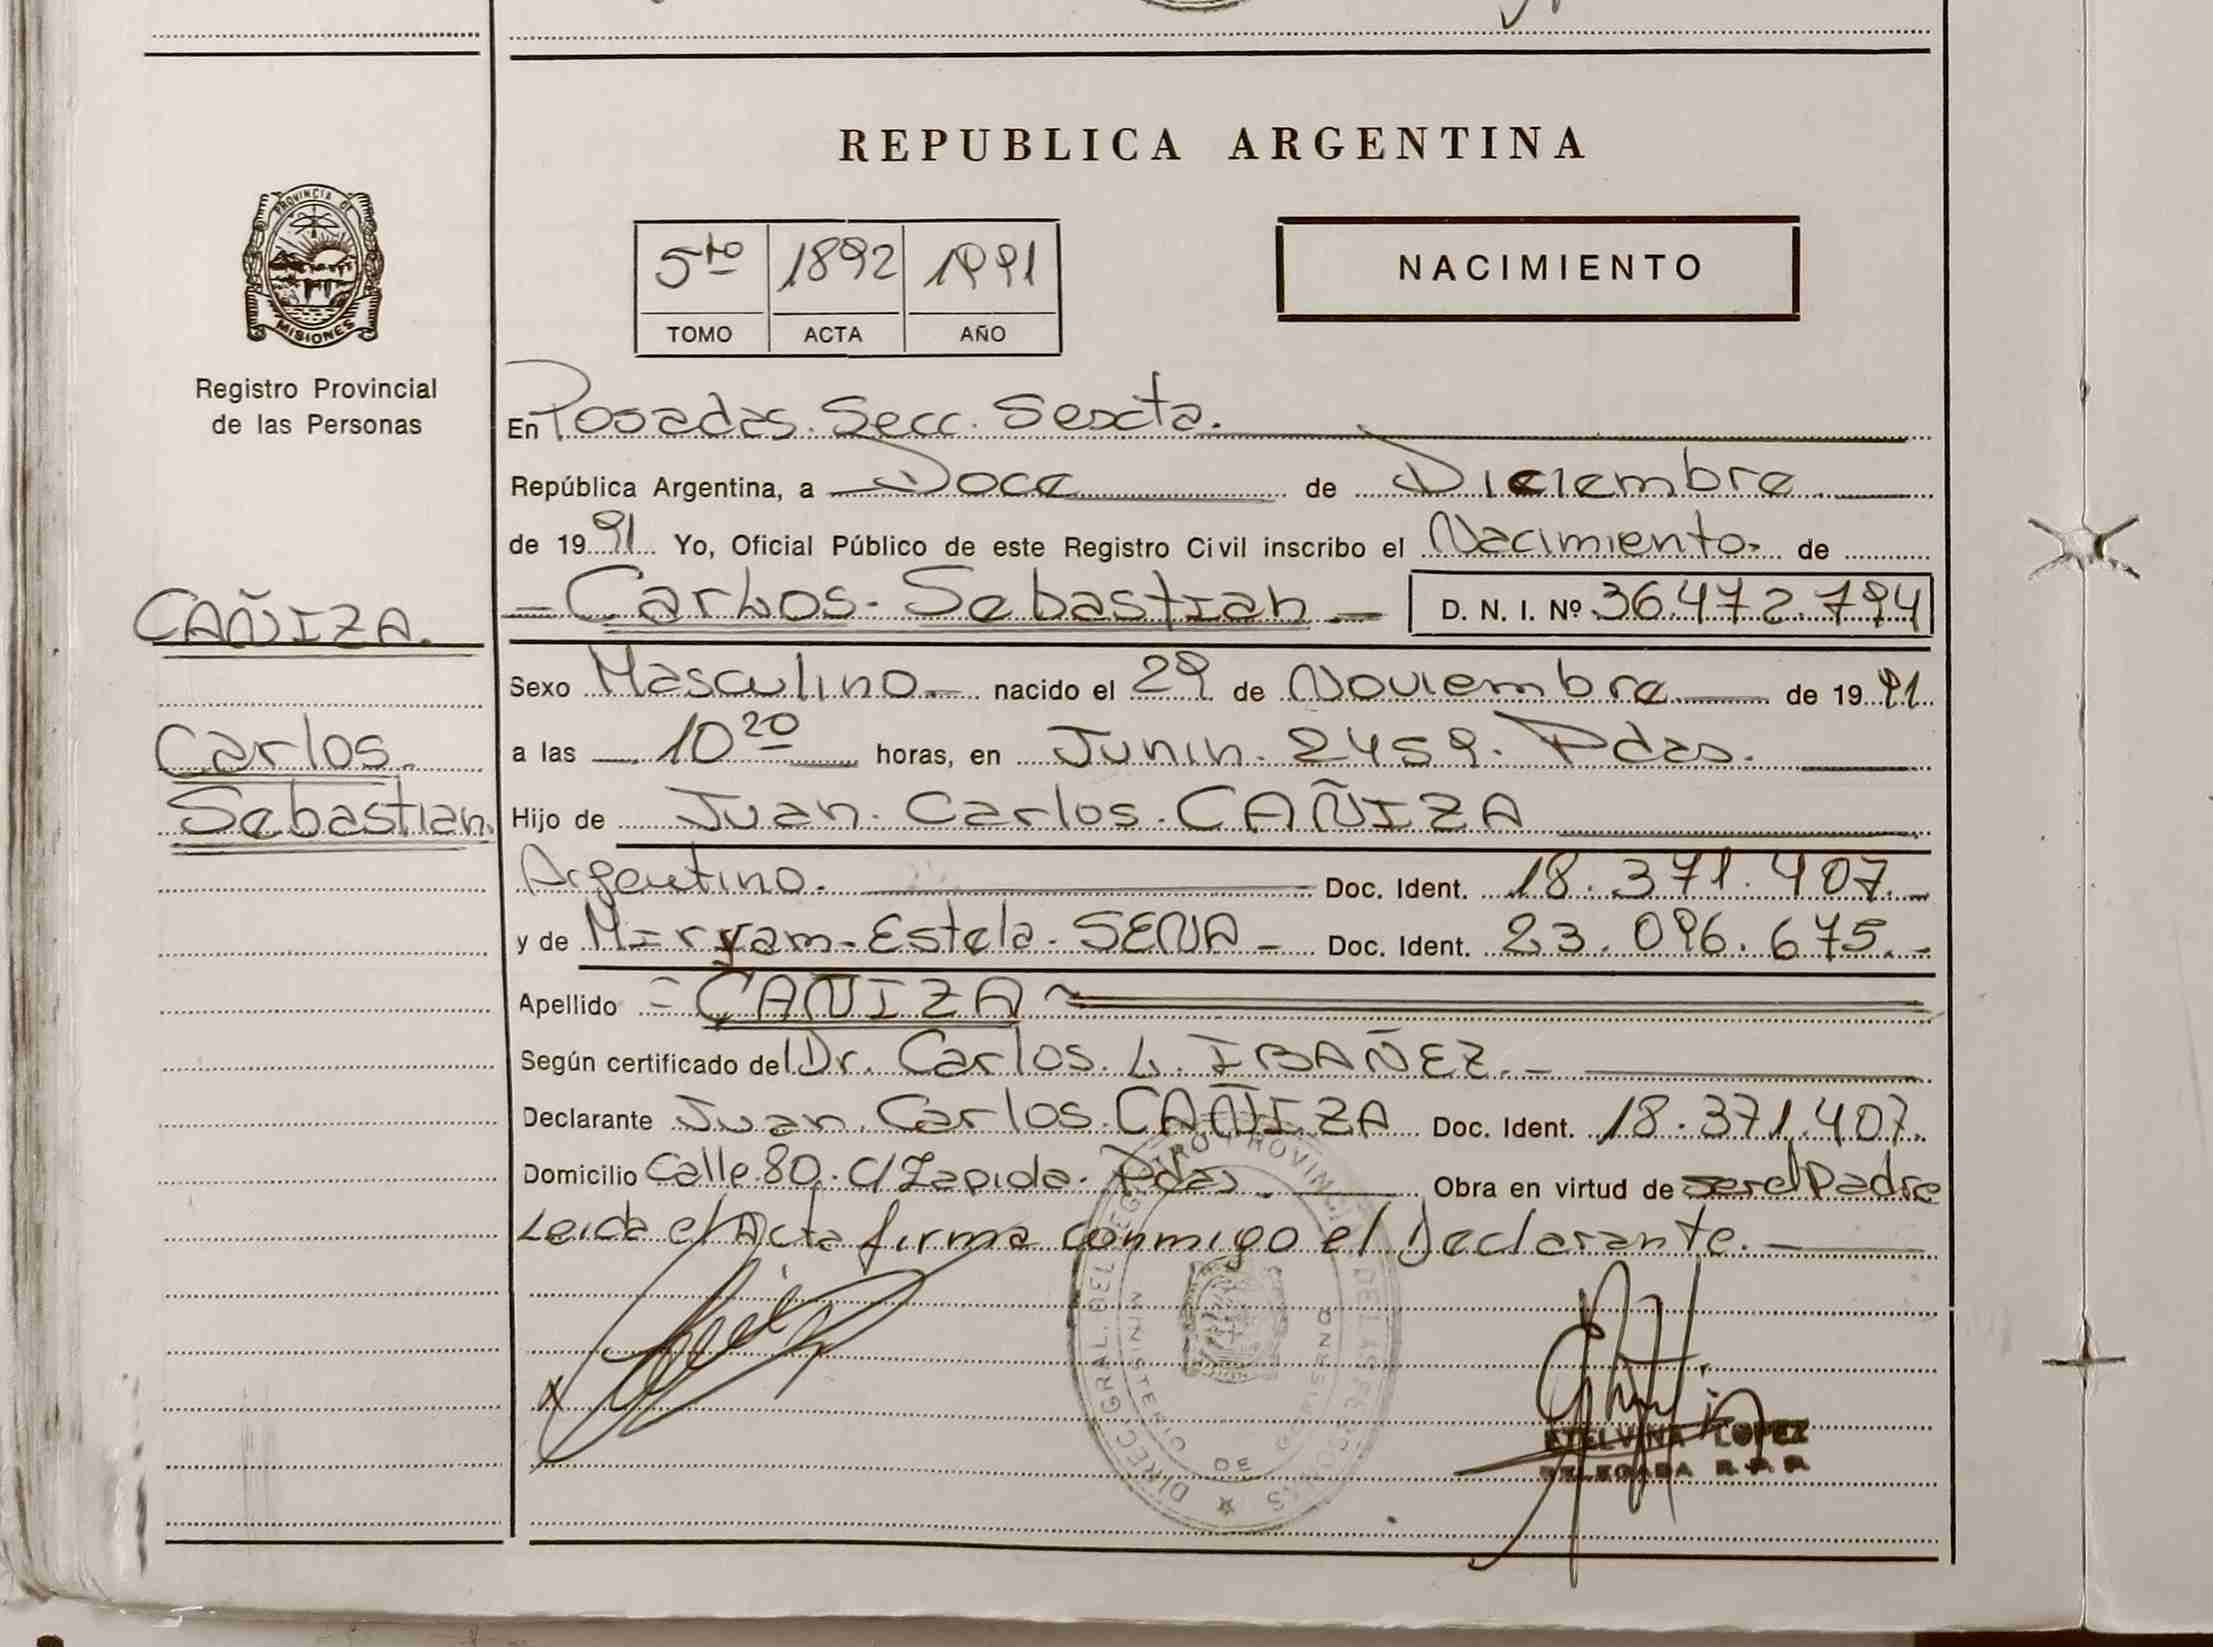 REPUBLICA ARGENTINA
PROVINCIA DE
MISIONES
Registro Provincial
de las Personas
5to 1892 1991
TOMO ACTA AÑO
NACIMIENTO
En Posadas. Secc. Sexta.
República Argentina, a Doce de Diciembre
de 1991 Yo, Oficial Público de este Registro Civil inscribo el Nacimiento de
CAÑIZA.
Carlos. Sebastian D. N. I. Nº 36.472.794
Sexo Masculino nacido el 29 de Noviembre de 1991
Carlos.
a las 10 20 horas, en Junin. 2459. Pdas.
Sebastian.
Hijo de Juan. Carlos. CAÑIZA
Argentino. Doc. Ident. 18.371.407.
y de Miryam Estela. SENA Doc. Ident. 23.096.675.
Apellido = CAÑIZA
Según certificado del Dr. Carlos. L. IBAÑEZ.
Declarante Juan. Carlos. CAÑIZA Doc. Ident. 18.371.407.
Domicilio Calle. 80. C/Zapiola. Pdas. Obra en virtud de ser el Padre
Leida el Acta firma conmigo el Declarante.
DIREC. GRAL. DEL REGISTRO PROVINCIAL DE LAS PERSONAS
MINISTERIO DE GOBIERNO
X
ETELVINA LOPEZ
DELEGADA R.P.P.